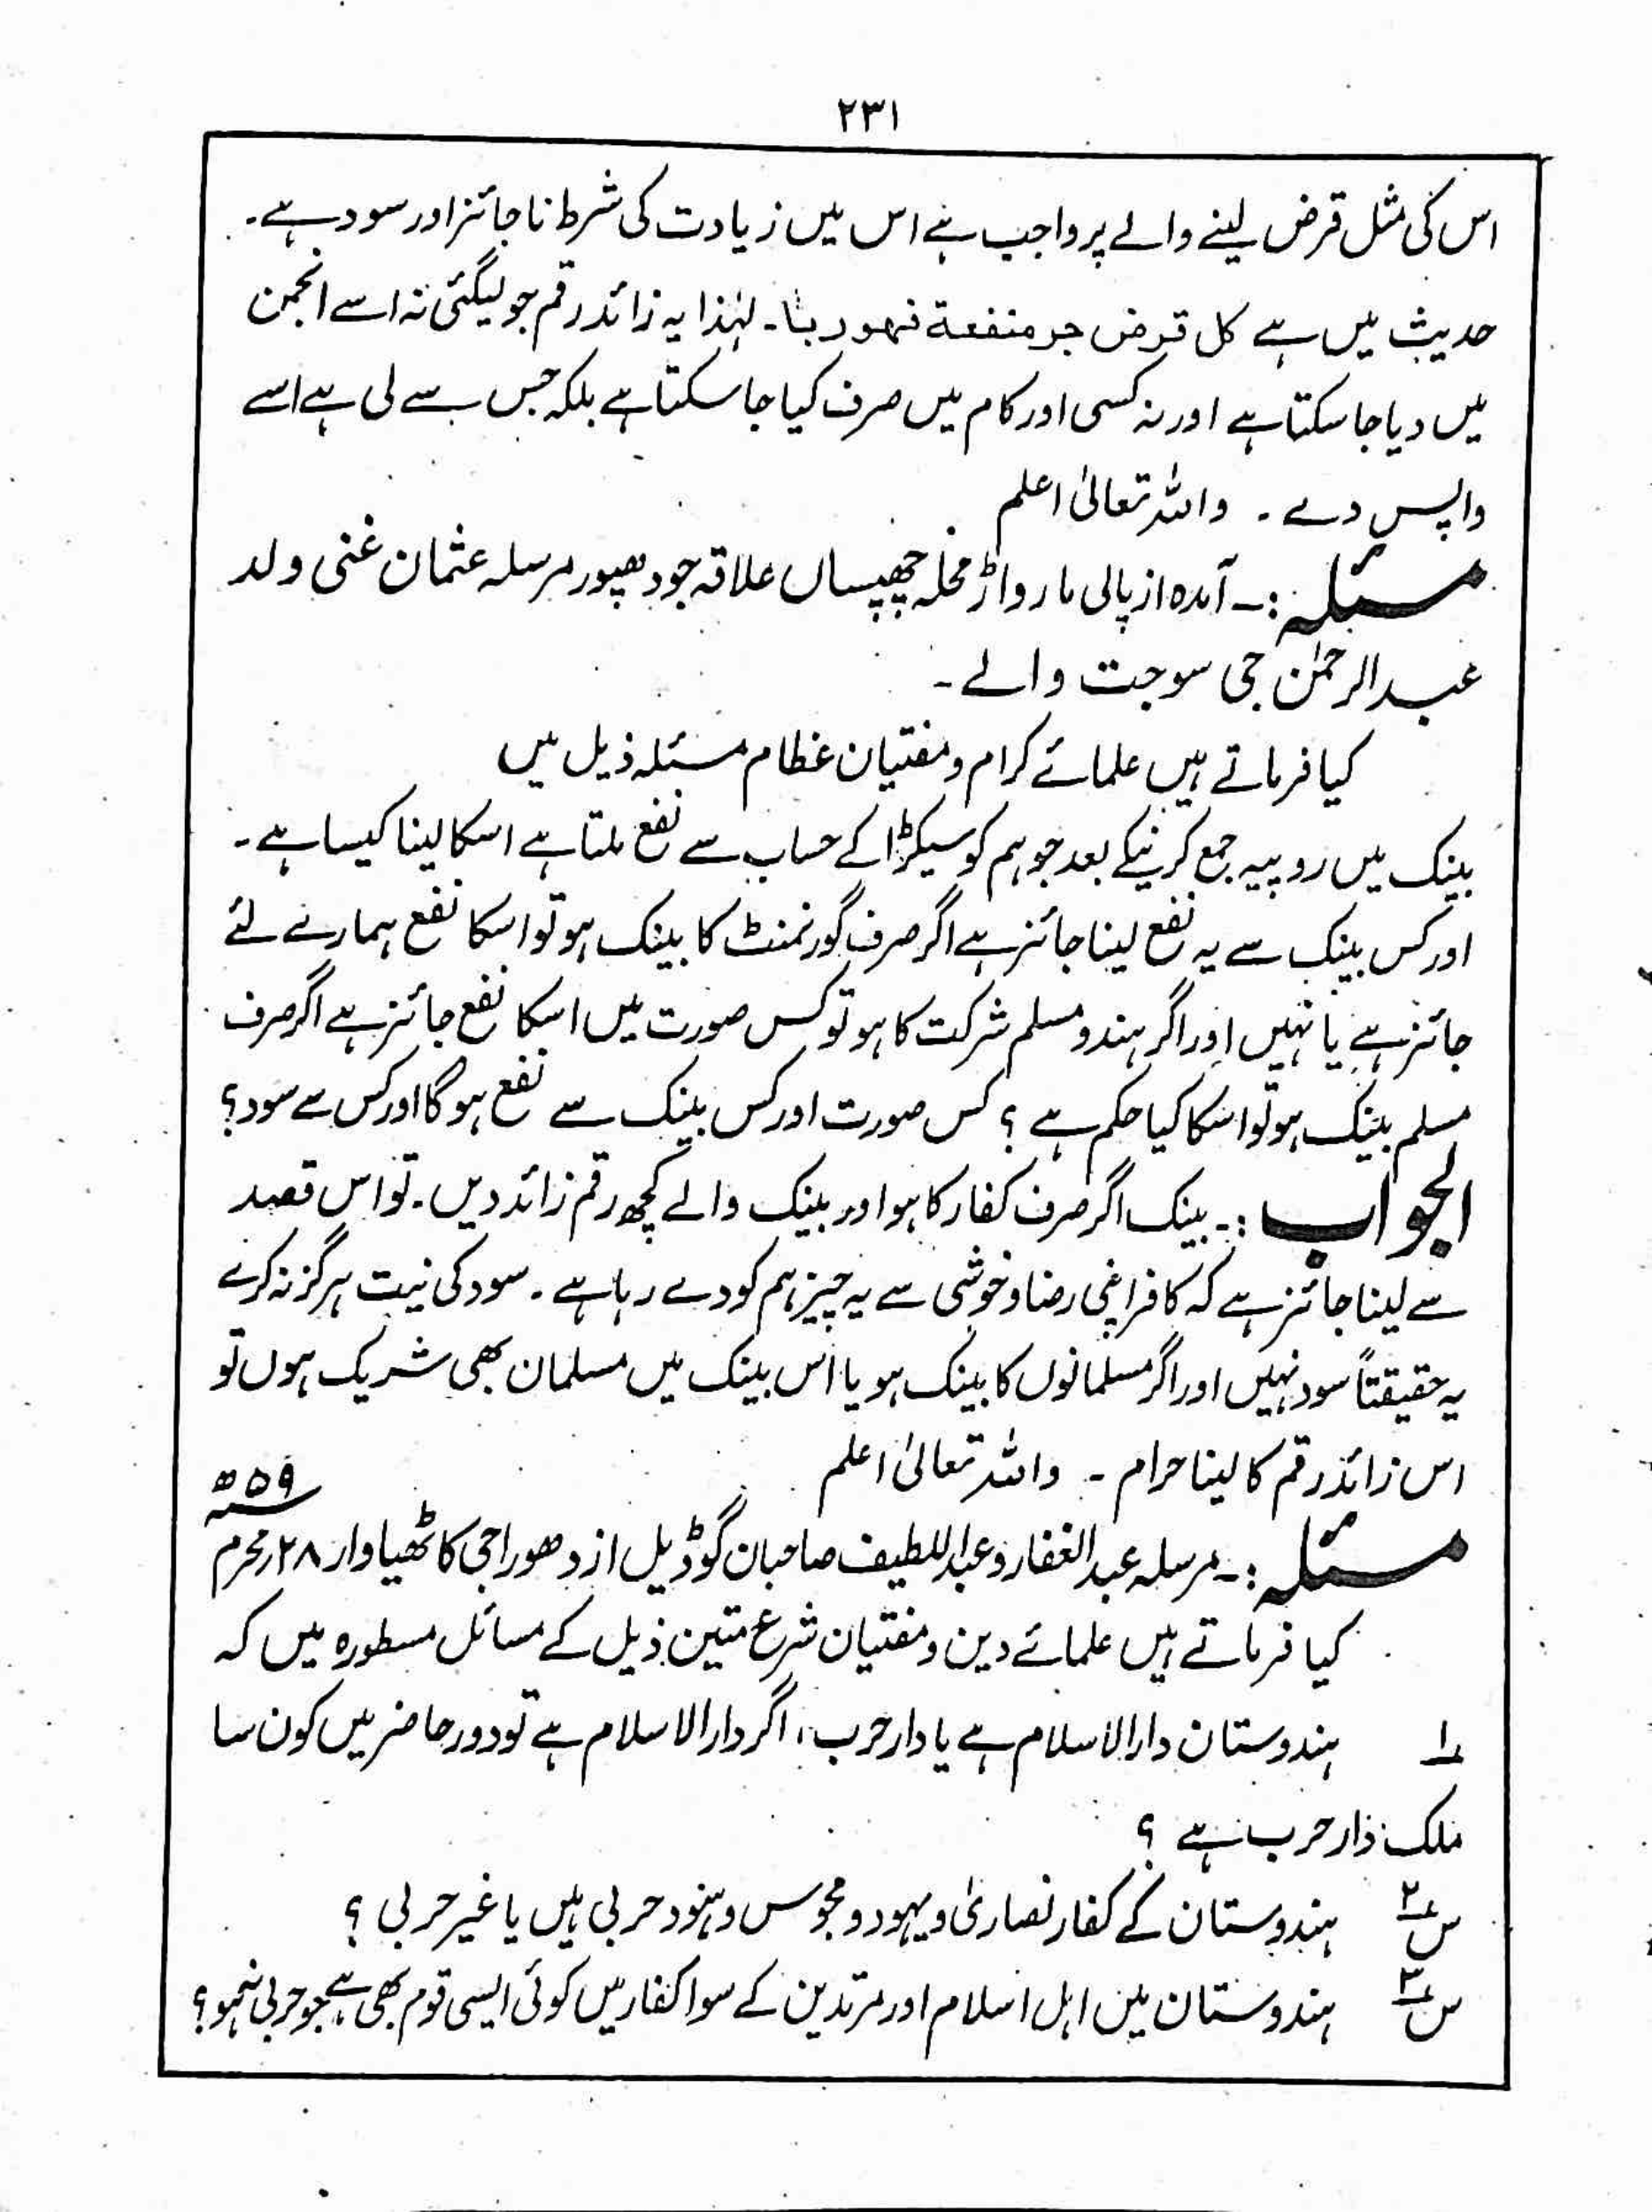 ۲۳۱
اس کی مثل قرض لینے والے پر واجب ہے اس میں زیادت کی شرط ناجائز اور سود ہے۔
حدیث میں ہے کل قرض جر منفعة فهو ربا۔ لہٰذا یہ زائد رقم جو لیگئی نہ اسے انجمن
میں دیا جا سکتا ہے اور نہ کسی اور کام میں صرف کیا جا سکتا ہے بلکہ جس سے لی ہے اسے
واپس دے۔ واللہ تعالیٰ اعلم
مسئلہ:۔ آمدہ از پالی مارواڑ محلہ چھیپساں علاقہ جودھپور مرسلہ عثمان غنی ولد
عبدالرحمٰن جی سوجت والے۔
کیا فرماتے ہیں علمائے کرام و مفتیان عظام مسئلہ ذیل میں
بینک میں روپیہ جمع کرنیکے بعد جو ہم کو سیکڑا کے حساب سے نفع ملتا ہے اسکا لینا کیسا ہے۔
اور کس بینک سے یہ نفع لینا جائز ہے اگر صرف گورنمنٹ کا بینک ہو تو اسکا نفع ہمارے لئے
جائز ہے یا نہیں اور اگر ہندو مسلم شرکت کا ہو تو کس صورت میں اسکا نفع جائز ہے اگر صرف
مسلم بینک ہو تو اسکا کیا حکم ہے؟ کس صورت اور کس بینک سے نفع ہوگا اور کس سے سود؟
الجواب:۔ بینک اگر صرف کفار کا ہو اور بینک والے کچھ رقم زائد دیں۔ تو اس قصد
سے لینا جائز ہے کہ کافر اپنی رضا و خوشی سے یہ چیز ہم کو دے رہا ہے۔ سود کی نیت ہرگز نہ کرے
یہ حقیقتاً سود نہیں اور اگر مسلمانوں کا بینک ہو یا اس بینک میں مسلمان بھی شریک ہوں تو
اس زائد رقم کا لینا حرام۔ واللہ تعالیٰ اعلم
مسئلہ:۔ مرسلہ عبدالغفار و عبداللطیف صاحبان گوڈیل از دھوراجی کاٹھیاوار ۲۸ محرم ۵۹ھ
کیا فرماتے ہیں علمائے دین و مفتیان شرع متین ذیل کے مسائل مسطورہ میں کہ
۱ ہندوستان دارالاسلام ہے یا دار حرب، اگر دارالاسلام ہے تو دور حاضر میں کون سا
ملک دار حرب ہے؟
س۲ ہندوستان کے کفار نصاریٰ و یہود و مجوس و ہنود حربی ہیں یا غیر حربی؟
س۳ ہندوستان میں اہل اسلام اور مرتدین کے سوا کفار میں کوئی ایسی قوم بھی ہے جو حربی نہو؟